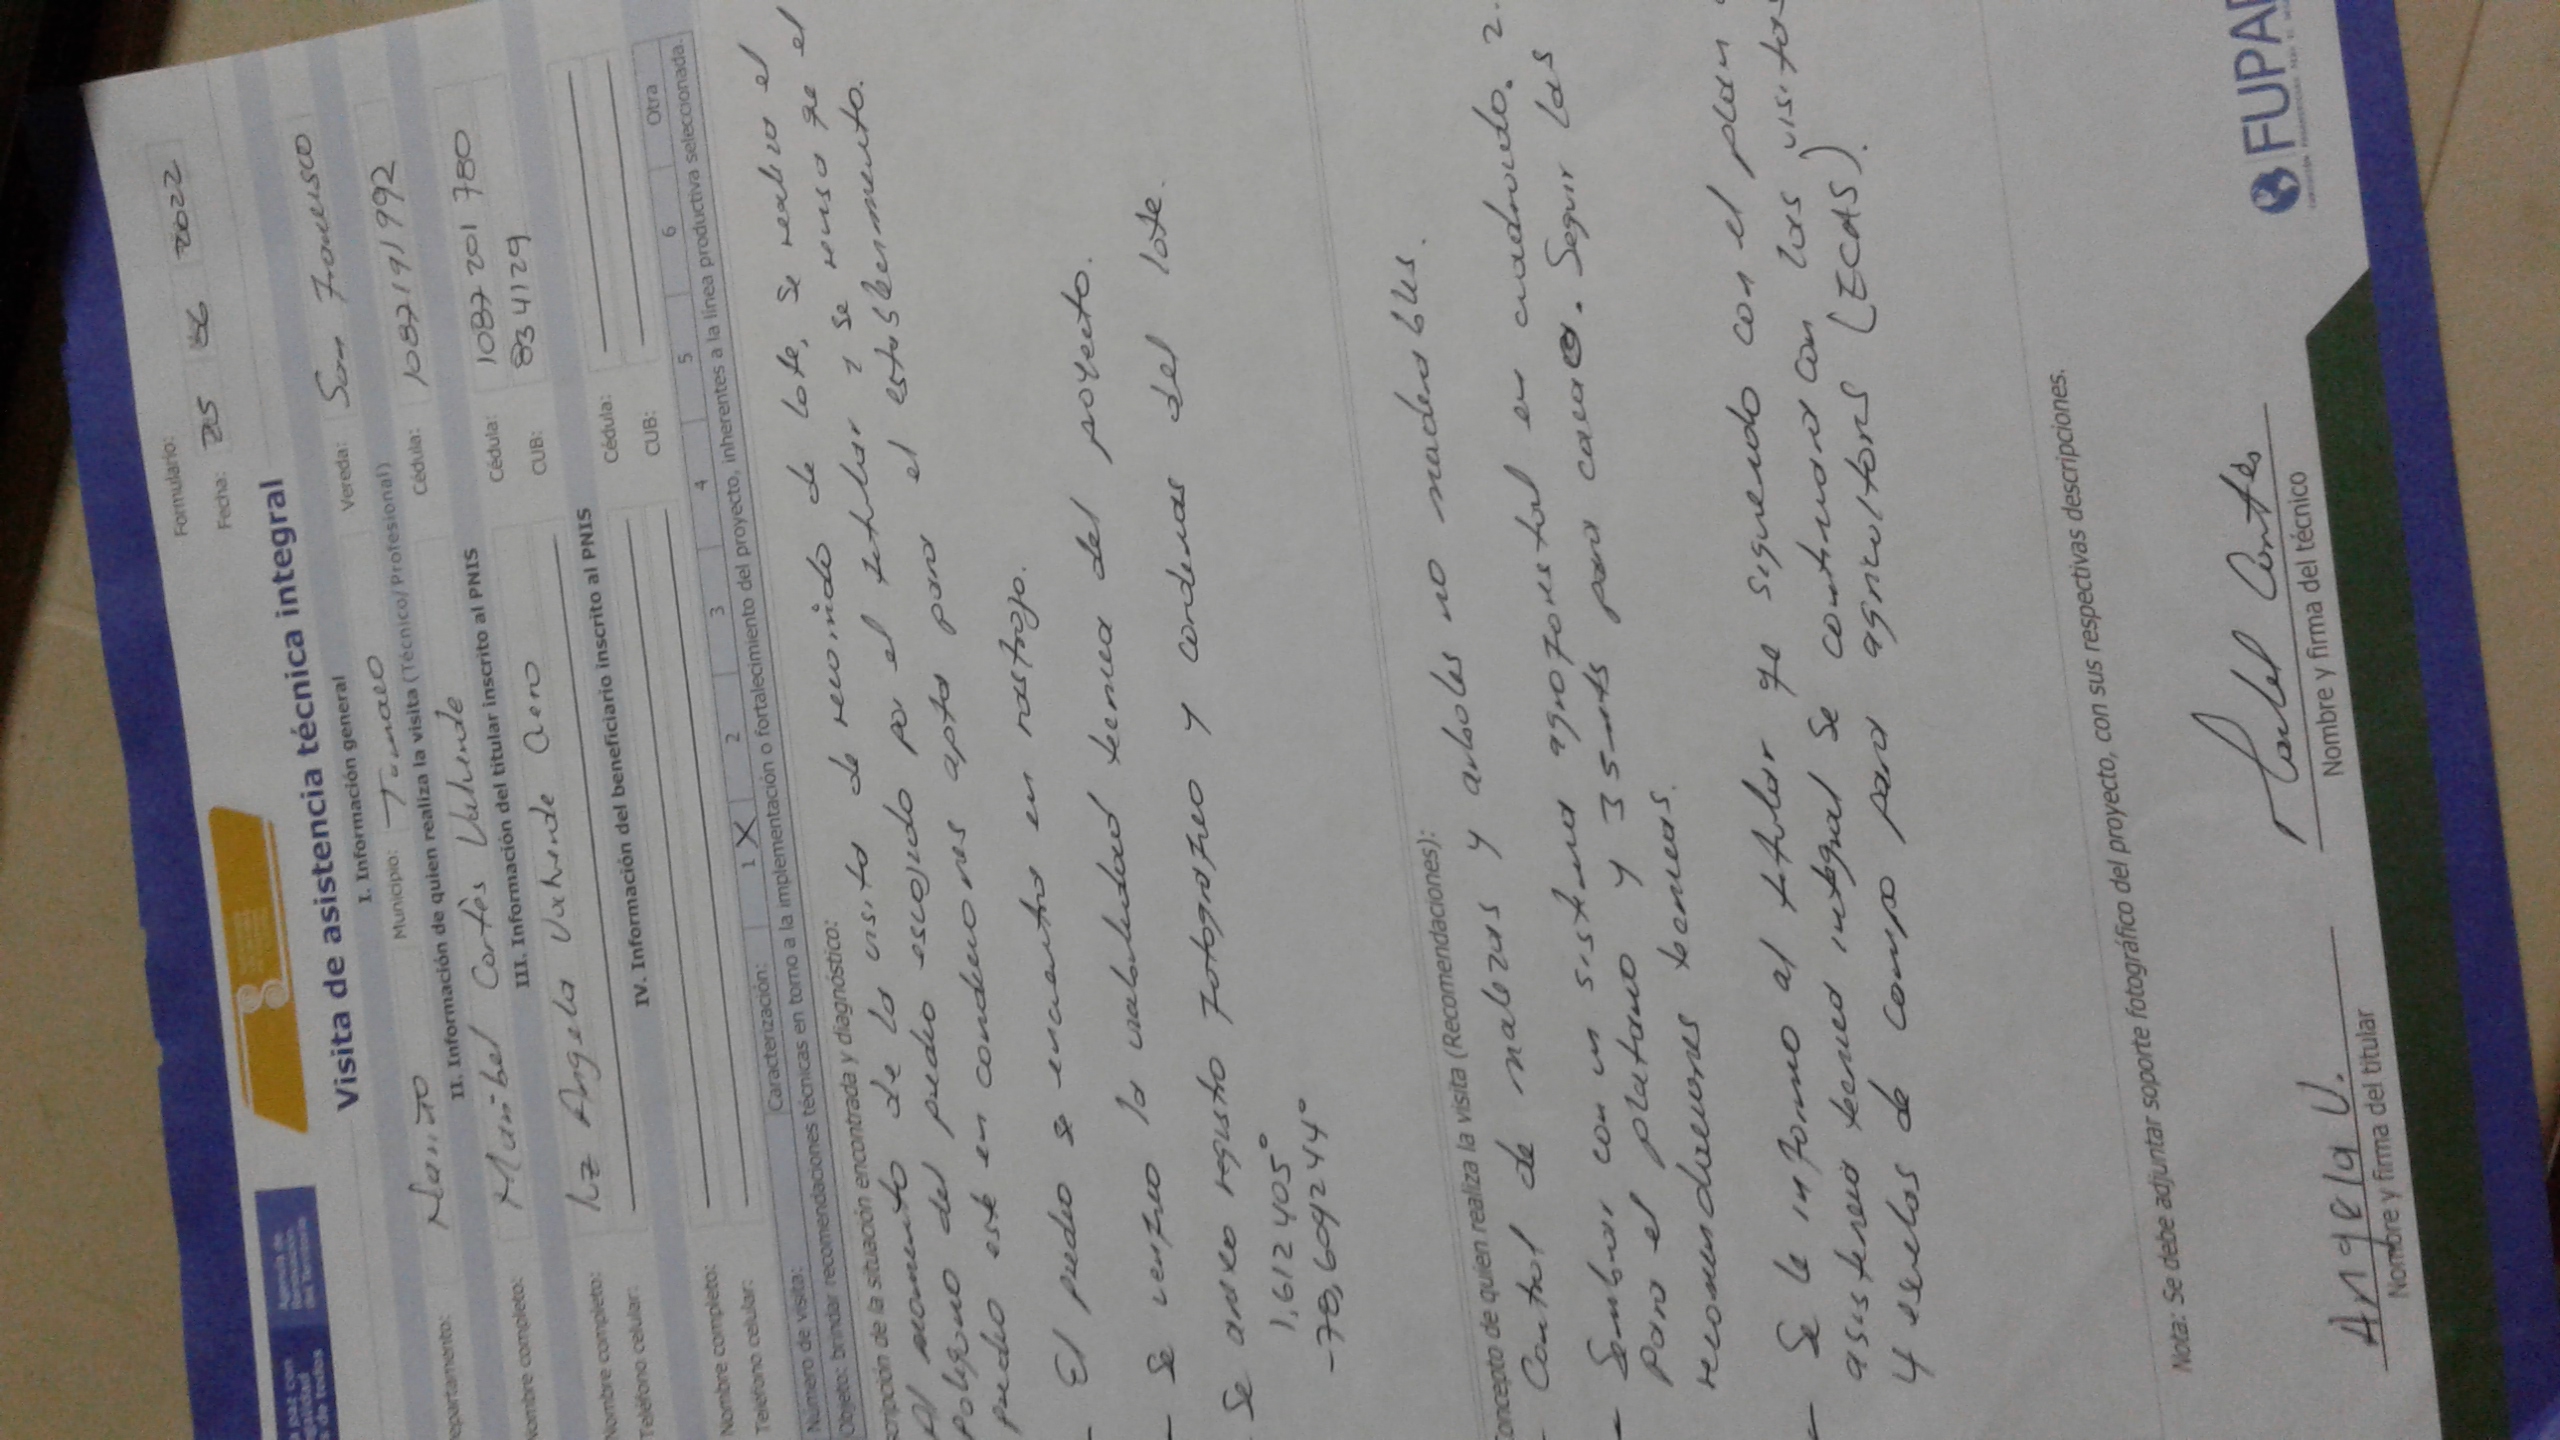 la paz con
legalidad
es de todos
Agencia de
Renovación
del Territorio
Formulario:
Fecha: 25 06 2022
Visita de asistencia técnica integral
I. Información general
epartamento: Nariño Municipio: Tumaco Vereda: San Francisco
II. Información de quien realiza la visita (Técnico/Profesional)
Nombre completo: Maribel Cortès Valverde Cédula: 1087191992
III. Información del titular inscrito al PNIS
Nombre completo: luz Angela Valverde Cédula: 1087201780
Teléfono celular: CUB: 834129
IV. Información del beneficiario inscrito al PNIS
Nombre completo: Cédula:
Teléfono celular: CUB:
Número de visita: Caracterización: 1 X 2 3 4 5 6 Otra
Objeto: brindar recomendaciones técnicas en torno a la implementación o fortalecimiento del proyecto, inherentes a la línea productiva seleccionada.
cripción de la situación encontrada y diagnóstico:
Al momento de la visita de recorrido de lote, se realizo el
poligono del predio escogido por el titular y se reviso que el
predio este en condiciones aptas para el establecimiento.
- El predio se encuentra en rastrojo.
- Se verifico la viabilidad tecnica del proyecto.
Se anexo registro fotografico y cordenas del lote.
1,612405°
-78,609244°
Concepto de quien realiza la visita (Recomendaciones):
- Control de malezas y arboles no maderables.
- Sembrar con un sistema agroforestal en cuadrado. 2.
para el platano y 35 mts para cacao. Seguir las
recomendaciones tecnicas.
- Se le informo al titular que siguiendo con el plan
asistencia tecnica integral se continuara con las visitas
y escuelas de campo para agricultores (ECAS).
Nota: Se debe adjuntar soporte fotográfico del proyecto, con sus respectivas descripciones.
Angela V. Maribel Cortés
Nombre y firma del titular Nombre y firma del técnico
FUPAD